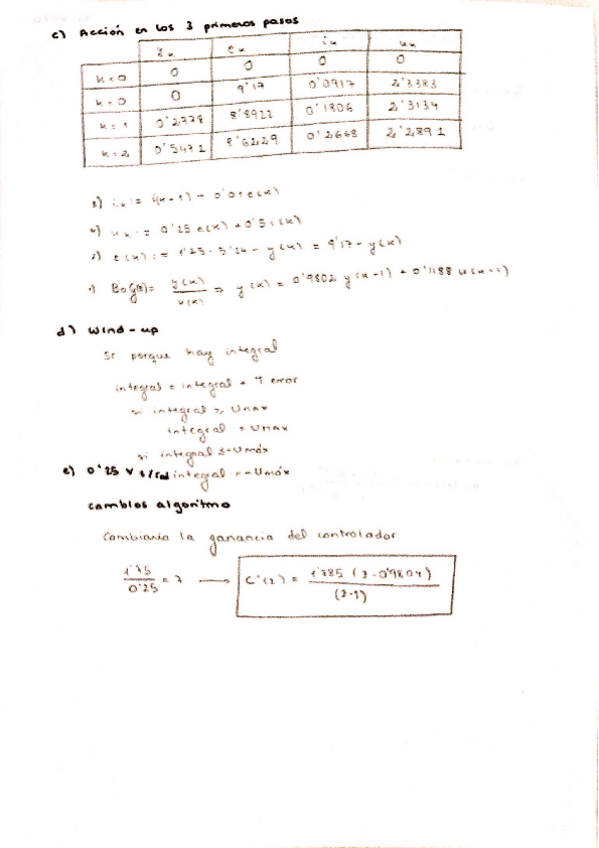 c) Acción en los 3 primeros pasos
yk ek ik uk
k<0 0 0 0 0
k=0 0 9'17 0'0917 2'3383
k=1 0'2778 8'8922 0'1806 2'3134
k=2 0'5471 8'6229 0'2668 2'2891
3) ik := i(k-1) + 0'01 e(k)
4) uk := 0'25 e(k) + 0'5 i(k)
2) e(k) := 1'25 · 5'24 - y(k) = 9'17 - y(k)
1) BoG(z) = y(k)/u(k) ⇒ y(k) = 0'9802 y(k-1) + 0'1188 u(k-1)
d) Wind-up
Si porque hay integral
integral = integral + T error
si integral ≥ Umax
integral = Umax
si integral ≤ -Umáx
e) 0'25 V s/rad integral = -Umáx
cambios algoritmo
Cambiaría la ganancia del controlador
1'75/0'25 = 7 → C'(z) = 1'785 (z-0'9804)/(z-1)